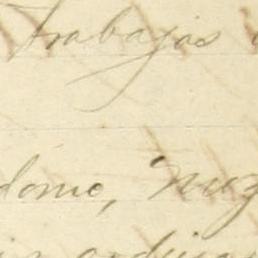 Trabajos
dome, Nuz
ordina